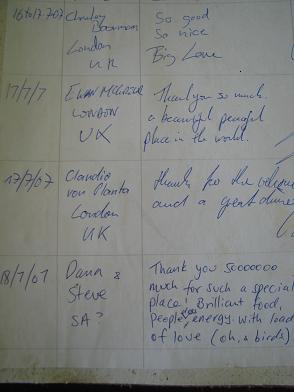 16 to 17.7.07 Charley So good
Boorman So nice
London Big Love
UK
17/7/7 EWAN MCGREGOR Thank you so much
LONDON a beautiful peaceful
UK place in the world.
17/7/07 Claudio thanks for the welcome
von Planta and a great dinner
London
UK
18/7/07 Dana & Thank you soooooo
Steve much for such a special
SA place! Brilliant food,
people, energy. with load
of love (oh, & birds)